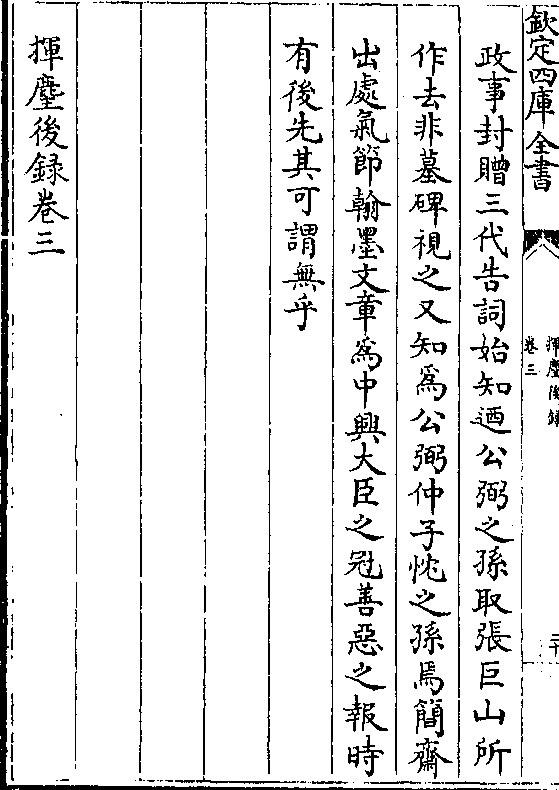 欽定四庫全書
揮麈後録
卷三
二十
政事封贈三代告詞始知迺公弼之孫取張巨山所
作去非墓碑視之又知為公弼仲子忱之孫焉簡齋
出處氣節翰墨文章為中興大臣之冠善惡之報時
有後先其可謂無乎
揮麈後録卷三